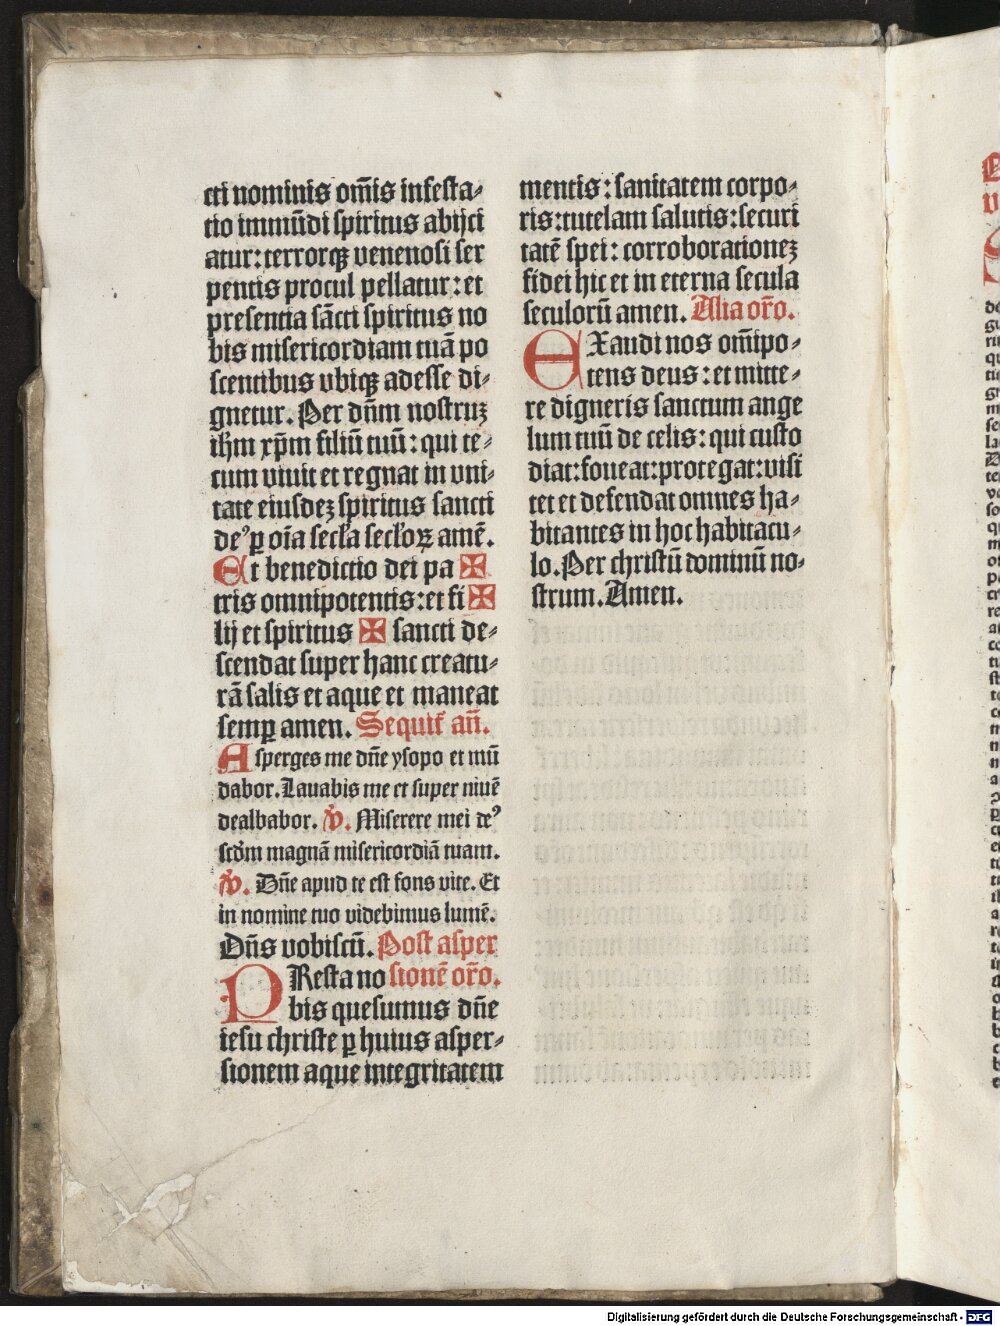 cti nominis om̄is infesta⸗
tio immūdi spiritus abijci
atur: terrorqꝫ venenosi ser
pentis procul pellatur: et
presentia sācti spiritus no
bis misericordiam tuā po
scentibus vbiqꝫ adesse di⸗
gnetur. Per dn̄m nostruꝫ
ihm̄ xp̄m filiū tuū: qui te⸗
cum viuit et regnat in vni⸗
tate eiusdeꝫ spiritus sancti
de⁹ ꝑ oīa secl̓a secl̓oꝝ amē.
Et benedictio dei pa ✠
tris omnipotentis: et fi ✠
lij et spiritus ✠ sancti de⸗
scendat super hanc creatu⸗
rā salis et aque et maneat
semꝑ amen. Sequit̄ an̄.
Asperges me dn̄e ysopo et mū
dabor. Lauabis me et super niuē
dealbabor. ℣. Miserere mei de⁹
scd̄m magnā misericordiā tuam.
℣. Dn̄e apud te est fons vite. Et
in nomine tuo videbimus lumē.
Dn̄s vobiscū. Post asper
PResta no sionē or̄o.
bis quesumus dn̄e
iesu christe ꝑ huius asper⸗
sionem aque integritatem
mentis: sanitatem corpo⸗
ris: tutelam salutis: securi
tatē spei: corroborationeꝫ
fidei hic et in eterna secula
seculorū amen. Alia or̄o.
EXaudi nos om̄ipo⸗
tens deus: et mitte⸗
re digneris sanctum ange
lum tuū de celis: qui custo
diat: foueat: protegat: visi
tet et defendat omnes ha⸗
bitantes in hoc habitacu⸗
lo. Per christū dominū no⸗
strum. Amen.
Digitalisierung gefördert durch die Deutsche Forschungsgemeinschaft - DFG